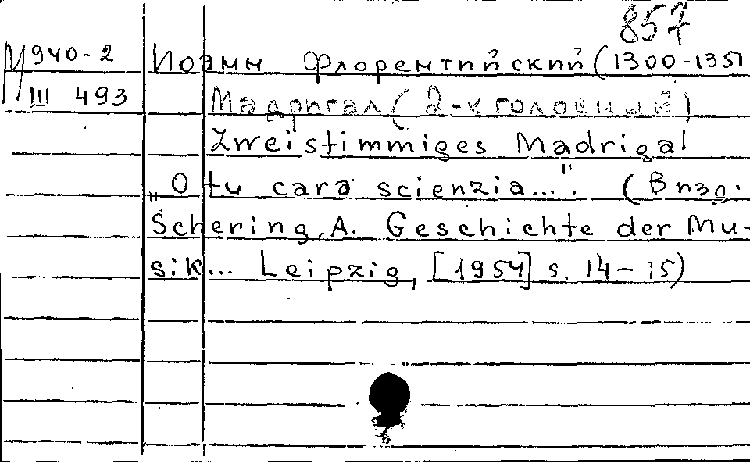 857
И940-2 Иоанн Флорентийский (1300-1351
III 493 Мадригал (2-х голосный)
Zweistimmiges Madrigal
„O tu cara scienzia...". (В изд.
Schering, A. Geschichte der Mu-
sik... Leipzig, [1954] s. 14-15)